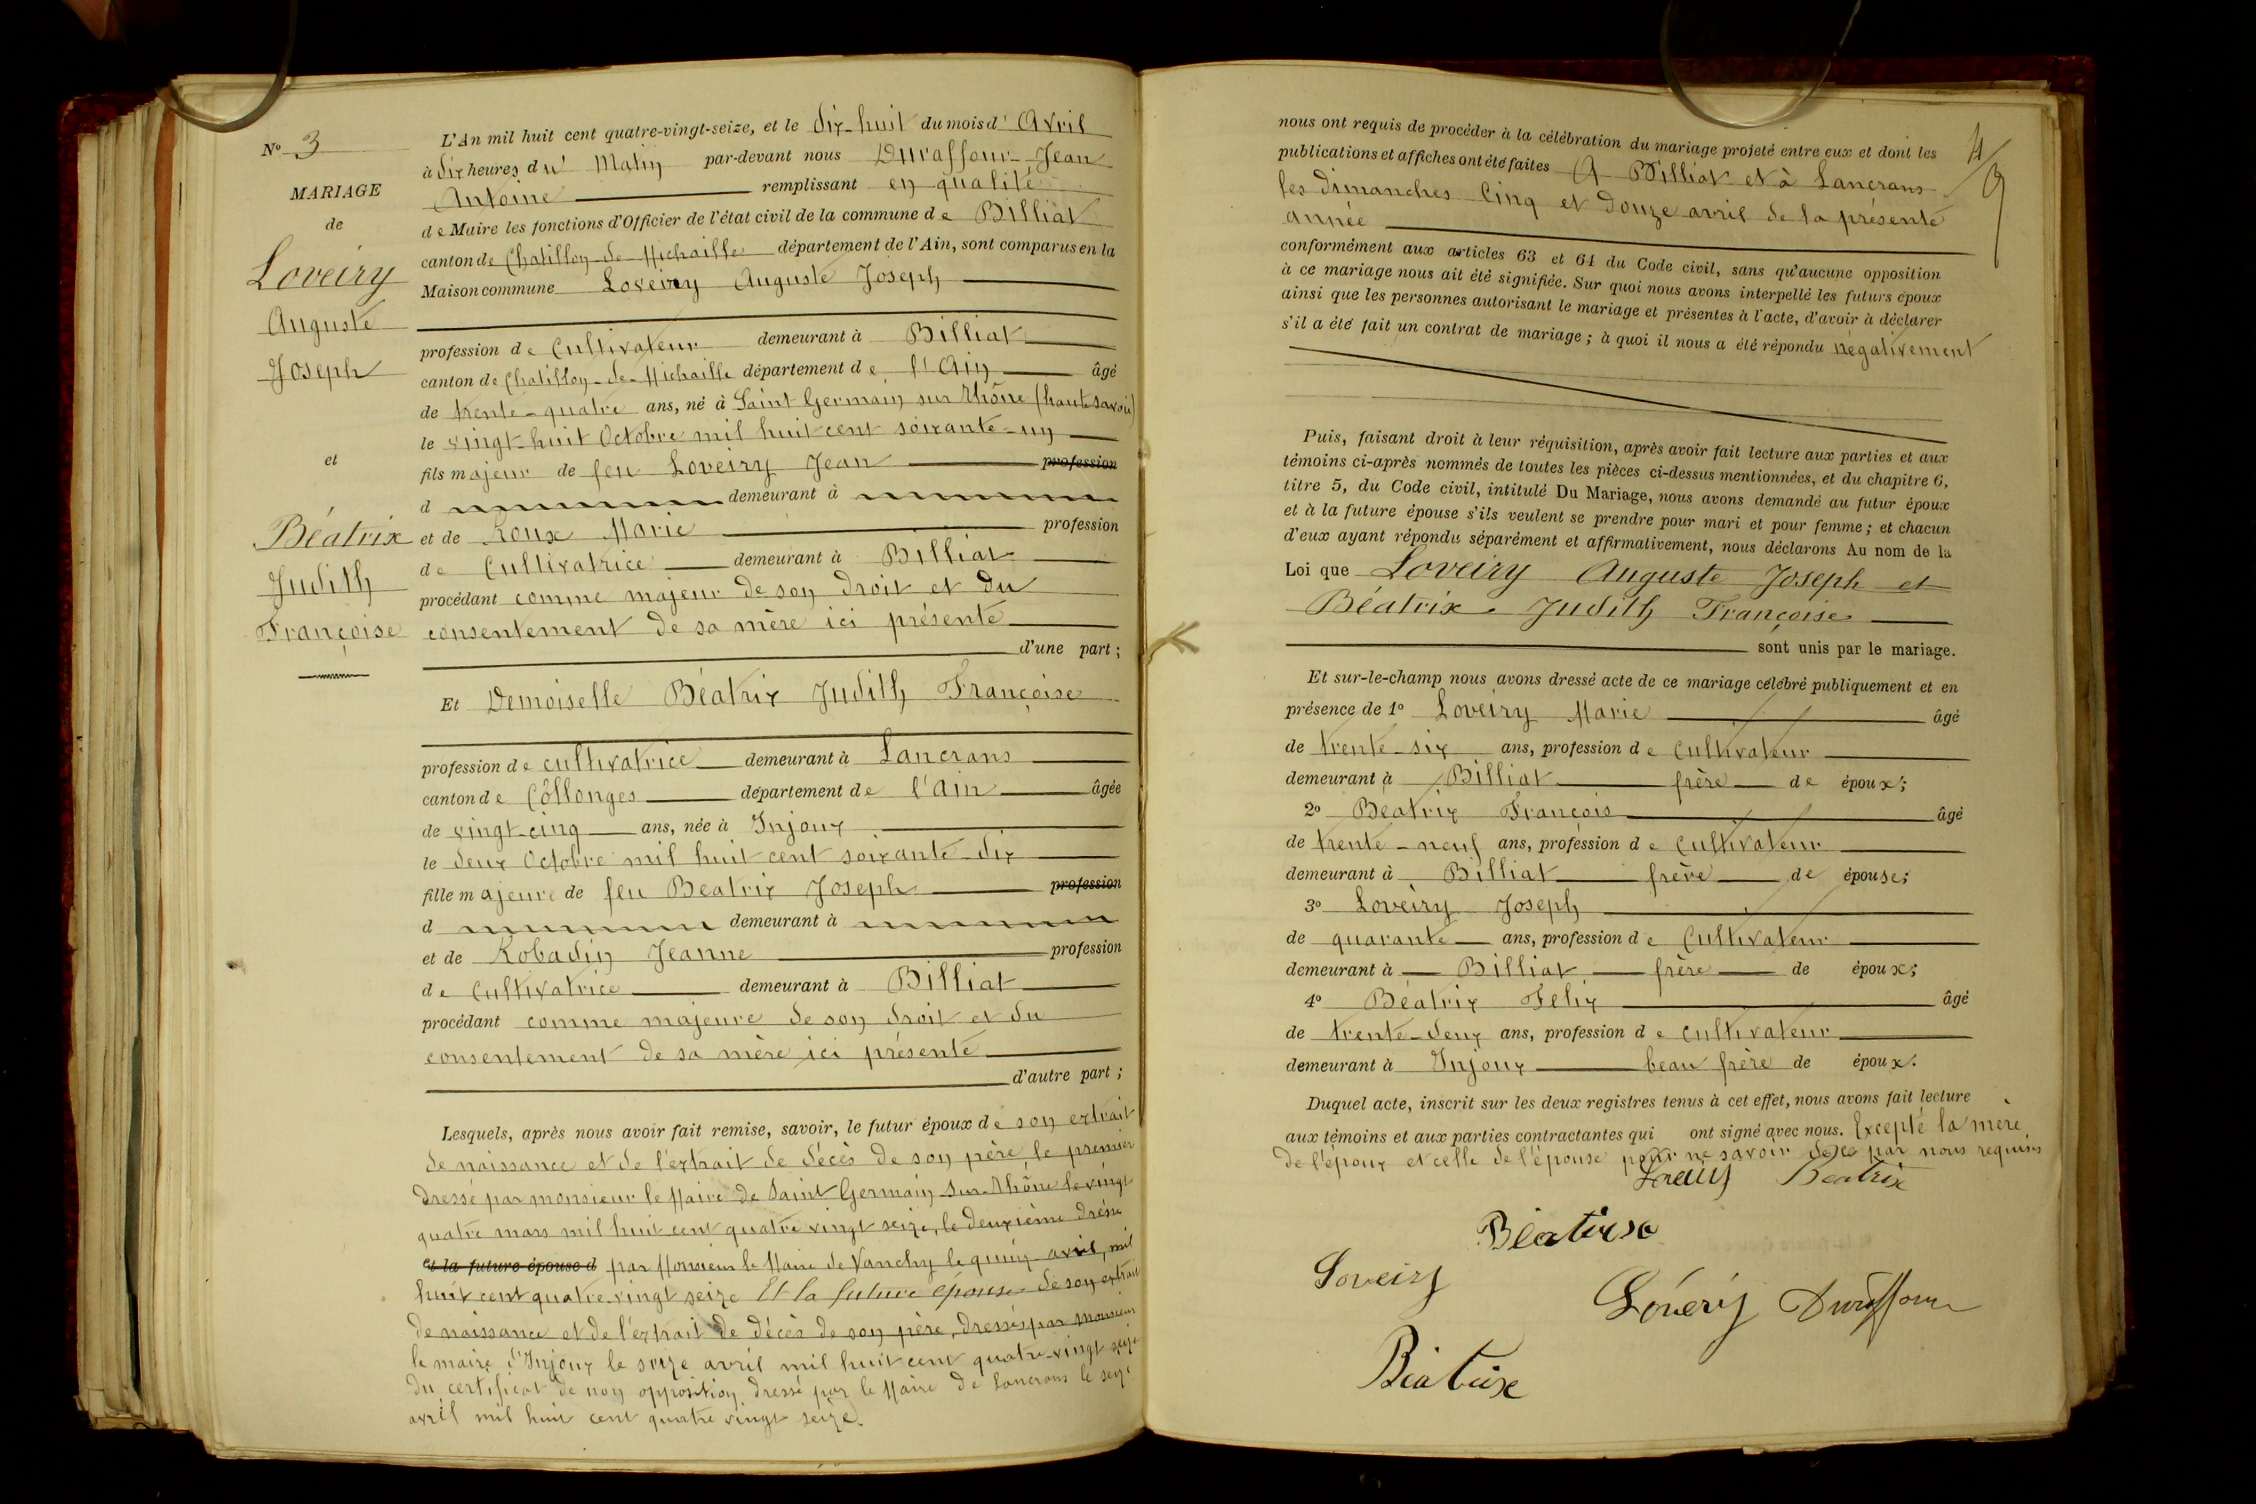 N° 3
MARIAGE
de
Loveiry
Auguste
Joseph
et
Béatrix
Judith
Françoise
L'An mil huit cent quatre-vingt-seize, et le dix-huit du mois d' Avril
à dix heures du Matin par-devant nous Duraffour Jean
Antoine remplissant en qualité
de Maire les fonctions d'Officier de l'état civil de la commune de Billiat
canton de Chatillon-de-Michaille département de l'Ain, sont comparus en la
Maison commune Loveiry Auguste Joseph
profession de Cultivateur demeurant à Billiat
canton de Chatillon-de-Michaille département de l'Ain âgé
de trente-quatre ans, né à Saint Germain sur Rhône (haute Savoie)
le vingt-huit Octobre mil huit cent soixante-un
fils majeur de feu Loveiry Jean profession
d demeurant à
et de Roux Marie profession
de Cultivatrice demeurant à Billiat
procédant comme majeur de son droit et du
consentement de sa mère ici présente
d'une part;
Et Demoiselle Béatrix Judith Françoise
profession de cultivatrice demeurant à Lancrans
canton de Collonges département de l'Ain âgée
de vingt-cinq ans, née à Injoux
le deux Octobre mil huit cent soixante-dix
fille majeure de feu Beatrix Joseph profession
d demeurant à
et de Robadin Jeanne profession
de Cultivatrice demeurant à Billiat
procédant comme majeure de son droit et du
consentement de sa mère ici présente
d'autre part;
Lesquels, après nous avoir fait remise, savoir, le futur époux de son extrait
de naissance et de l'extrait de décès de son père, le premier
dressé par monsieur le Maire de Saint Germain sur Rhône le vingt
quatre mars mil huit cent quatre vingt seize, le deuxième dressé
et la future épouse d par Monsieur le Maire de Vanchy le quinze avril, mil
huit cent quatre-vingt seize Et la future épouse de son extrait
de naissance et de l'extrait de décès de son père, dressés par monsieur
le maire d'Injoux le seize avril mil huit cent quatre-vingt seize
du certificat de non opposition dressé par le Maire de Lancrans le seize
avril mil huit cent quatre vingt seize.
nous ont requis de procéder à la célébration du mariage projeté entre eux et dont les
publications et affiches ont été faites A Billiat et à Lancrans
les dimanches Cinq et douze avril de la présente
année
conformément aux articles 63 et 64 du Code civil, sans qu'aucune opposition
à ce mariage nous ait été signifiée. Sur quoi nous avons interpellé les futurs époux
ainsi que les personnes autorisant le mariage et présentes à l'acte, d'avoir à déclarer
s'il a été fait un contrat de mariage; à quoi il nous a été répondu négativement
Puis, faisant droit à leur réquisition, après avoir fait lecture aux parties et aux
témoins ci-après nommés de toutes les pièces ci-dessus mentionnées, et du chapitre 6,
titre 5, du Code civil, intitulé Du Mariage, nous avons demandé au futur époux
et à la future épouse s'ils veulent se prendre pour mari et pour femme; et chacun
d'eux ayant répondu séparément et affirmativement, nous déclarons Au nom de la
Loi que Loveiry Auguste Joseph et
Béatrix Judith Françoise
sont unis par le mariage.
Et sur-le-champ nous avons dressé acte de ce mariage célébré publiquement et en
présence de 1° Loveiry Marie âgé
de trente-six ans, profession de Cultivateur
demeurant à Billiat frère de époux;
2° Beatrix François âgé
de trente-neuf ans, profession de Cultivateur
demeurant à Billiat frère de épouse;
3° Loveiry Joseph
de quarante ans, profession de Cultivateur
demeurant à Billiat frère de époux;
4° Béatrix Felix âgé
de trente-deux ans, profession de cultivateur
demeurant à Injoux beau frère de époux.
Duquel acte, inscrit sur les deux registres tenus à cet effet, nous avons fait lecture
aux témoins et aux parties contractantes qui ont signé avec nous. Excepté la mère
de l'époux et celle de l'épouse pour ne savoir de ce par nous requises
Beatrix
Béatrix
Loveiry
Lovéry Duraffour
Béatrix